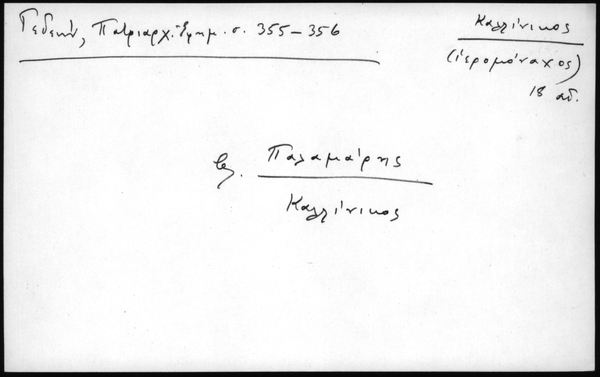 Γεδεών, Πατριαρχ. Ἐφημ. σ. 355–356
Καλλίνικος
(ἱερομόναχος)
18 αἰ.
βλ. Παλαμάρης
Καλλίνικος